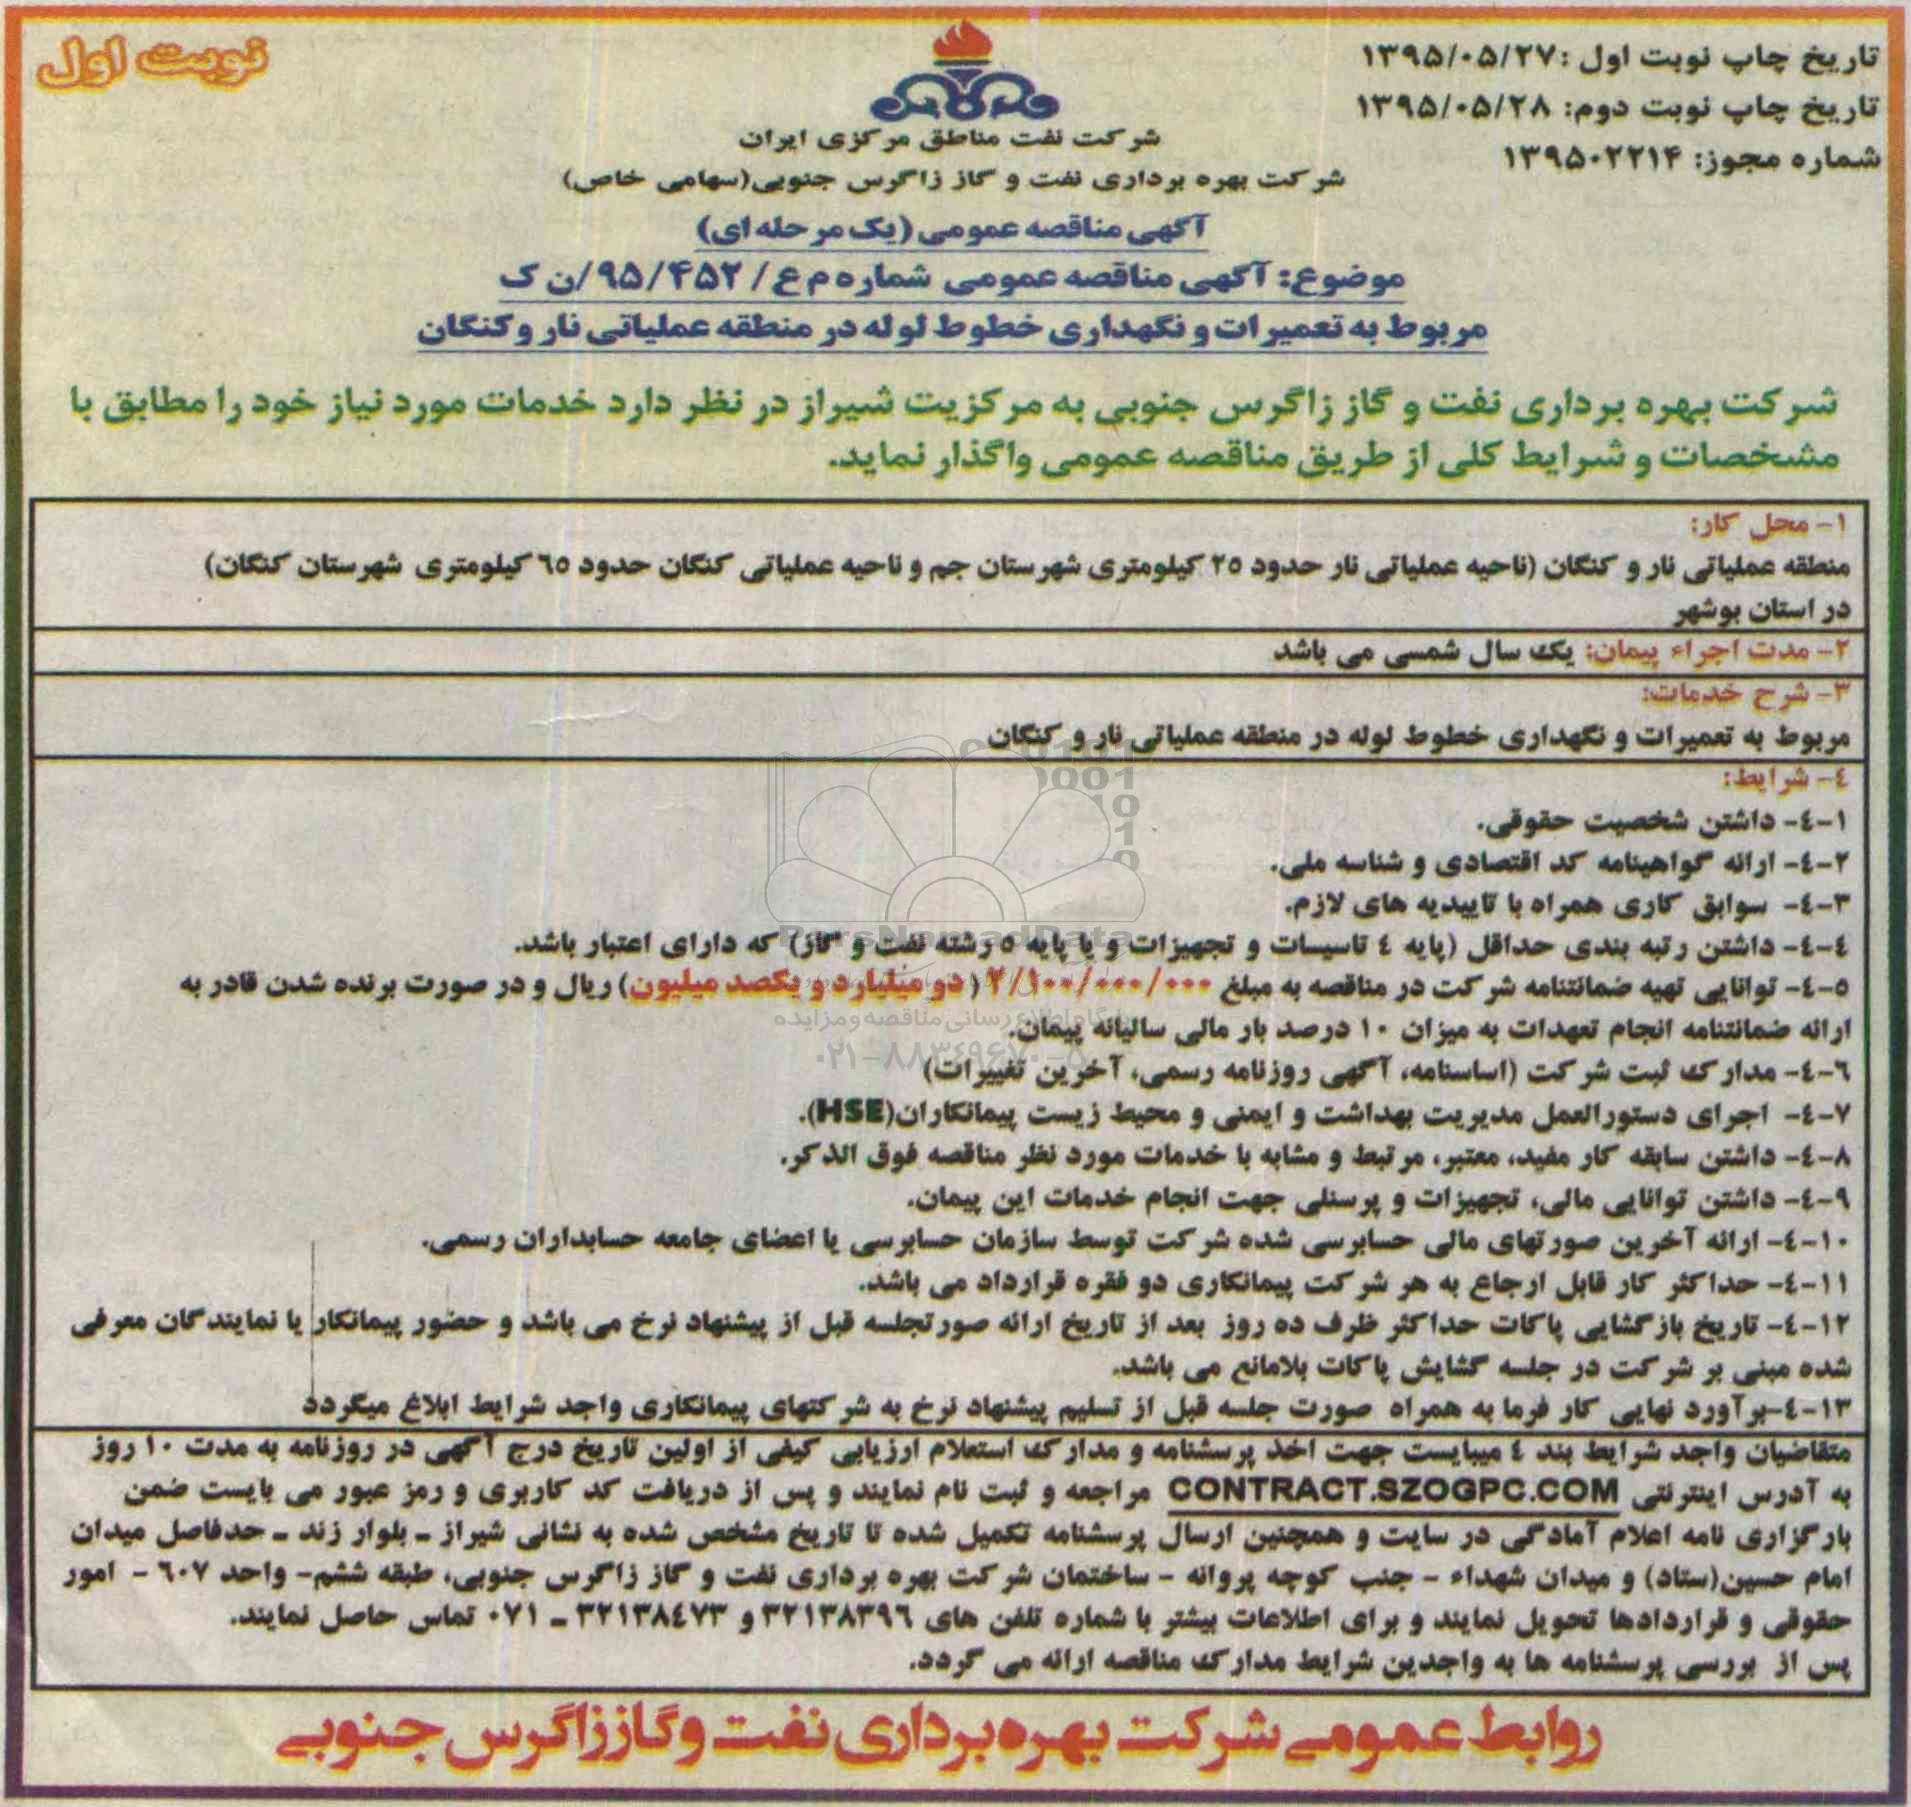 نوبت اول
تاریخ چاپ نوبت اول :۱۳۹۵/۰۵/۲۷
تاریخ چاپ نوبت دوم: ۱۳۹۵/۰۵/۲۸
شماره مجوز: ۱۳۹۵۰۲۲۱۴
شرکت نفت مناطق مرکزی ایران
شرکت بهره برداری نفت و گاز زاگرس جنوبی(سهامی خاص)
آگهی مناقصه عمومی (یک مرحله ای)
موضوع: آگهی مناقصه عمومی شماره م ع/ ۹۵/۴۵۲/ن ک
مربوط به تعمیرات و نگهداری خطوط لوله در منطقه عملیاتی نار و کنگان
شرکت بهره برداری نفت و گاز زاگرس جنوبی به مرکزیت شیراز در نظر دارد خدمات مورد نیاز خود را مطابق با
مشخصات و شرایط کلی از طریق مناقصه عمومی واگذار نماید.
۱- محل کار:
منطقه عملیاتی نار و کنگان (ناحیه عملیاتی نار حدود ۲۵ کیلومتری شهرستان جم و ناحیه عملیاتی کنگان حدود ۶۵ کیلومتری شهرستان کنگان)
در استان بوشهر
۲- مدت اجراء پیمان: یک سال شمسی می باشد
۳- شرح خدمات:
مربوط به تعمیرات و نگهداری خطوط لوله در منطقه عملیاتی نار و کنگان
۴- شرایط:
۴-۱- داشتن شخصیت حقوقی.
۴-۲- ارائه گواهینامه کد اقتصادی و شناسه ملی.
۴-۳- سوابق کاری همراه با تاییدیه های لازم.
۴-۴- داشتن رتبه بندی حداقل (پایه ۴ تاسیسات و تجهیزات و یا پایه ۵ رشته نفت و گاز) که دارای اعتبار باشد.
ParsNamadData
۴-۵- توانایی تهیه ضمانتنامه شرکت در مناقصه به مبلغ ۲/۱۰۰/۰۰۰/۰۰۰ ( دو میلیارد و یکصد میلیون) ریال و در صورت برنده شدن قادر به
ارائه ضمانتنامه انجام تعهدات به میزان ۱۰ درصد بار مالی سالیانه پیمان.
پایگاه اطلاع رسانی مناقصه و مزایده
۰۲۱-۸۸۳۴۹۶۷۰-۵
۴-۶- مدارک ثبت شرکت (اساسنامه، آگهی روزنامه رسمی، آخرین تغییرات)
۴-۷- اجرای دستورالعمل مدیریت بهداشت و ایمنی و محیط زیست پیمانکاران(HSE).
۴-۸- داشتن سابقه کار مفید، معتبر، مرتبط و مشابه با خدمات مورد نظر مناقصه فوق الذکر.
۴-۹- داشتن توانایی مالی، تجهیزات و پرسنلی جهت انجام خدمات این پیمان.
۴-۱۰- ارائه آخرین صورتهای مالی حسابرسی شده شرکت توسط سازمان حسابرسی یا اعضای جامعه حسابداران رسمی.
۴-۱۱- حداکثر کار قابل ارجاع به هر شرکت پیمانکاری دو فقره قرارداد می باشد.
۴-۱۲- تاریخ بازگشایی پاکات حداکثر ظرف ده روز بعد از تاریخ ارائه صورتجلسه قبل از پیشنهاد نرخ می باشد و حضور پیمانکار یا نمایندگان معرفی
شده مبنی بر شرکت در جلسه گشایش پاکات بلامانع می باشد.
۴-۱۳-برآورد نهایی کار فرما به همراه صورت جلسه قبل از تسلیم پیشنهاد نرخ به شرکتهای پیمانکاری واجد شرایط ابلاغ میگردد
متقاضیان واجد شرایط بند ۴ میبایست جهت اخذ پرسشنامه و مدارک استعلام ارزیابی کیفی از اولین تاریخ درج آگهی در روزنامه به مدت ۱۰ روز
به آدرس اینترنتی CONTRACT.SZOGPC.COM مراجعه و ثبت نام نمایند و پس از دریافت کد کاربری و رمز عبور می بایست ضمن
بارگزاری نامه اعلام آمادگی در سایت و همچنین ارسال پرسشنامه تکمیل شده تا تاریخ مشخص شده به نشانی شیراز ـ بلوار زند ـ حدفاصل میدان
امام حسین(ستاد) و میدان شهداء - جنب کوچه پروانه - ساختمان شرکت بهره برداری نفت و گاز زاگرس جنوبی، طبقه ششم- واحد ۶۰۷ - امور
حقوقی و قراردادها تحویل نمایند و برای اطلاعات بیشتر با شماره تلفن های ۳۲۱۳۸۳۹۶ و ۳۲۱۳۸۴۷۳ ـ ۰۷۱ تماس حاصل نمایند.
پس از بررسی پرسشنامه ها به واجدین شرایط مدارک مناقصه ارائه می گردد.
روابط عمومی شرکت بهره برداری نفت و گاز زاگرس جنوبی